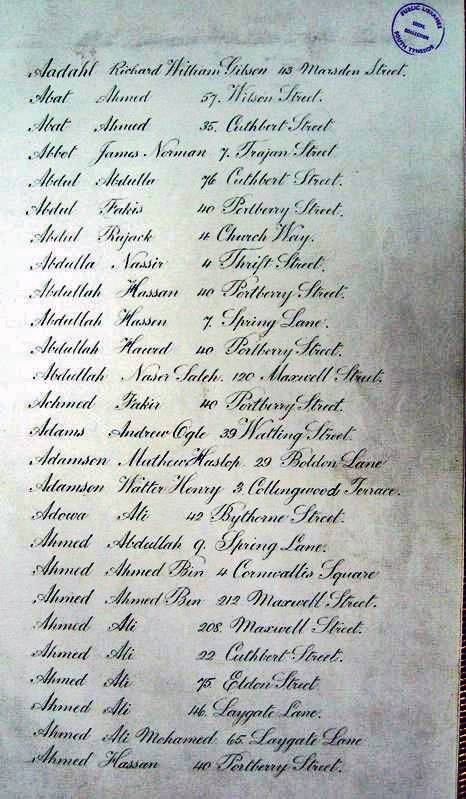 PUBLIC LIBRARIES
LOCAL
COLLECTION
SOUTH TYNESIDE
Aadahl Richard William Gibson 43 Marsden Street.
Abat Ahmed 57. Wilson Street.
Abat Ahmed 35. Cuthbert Street
Abbot James Norman 7. Trajan Street
Abdul Abdulla 76 Cuthbert Street.
Abdul Fakis 40 Portberry Street.
Abdul Rajack 4 Church Way.
Abdulla Nassir 4 Thrift Street.
Abdullah Hassan 40 Portberry Street.
Abdullah Hassen 7. Spring Lane.
Abdullah Hawed 40 Portberry Street.
Abdullah Naser Saleh. 120 Maxwell Street.
Achmed Fakir 40 Portberry Street.
Adams Andrew Ogle 39 Watling Street.
Adamson Mathew Haslop 29 Boldon Lane
Adamson Walter Henry 3. Collingwood Terrace.
Adowa Ali 42 Bythorne Street.
Ahmed Abdullah 9. Spring Lane.
Ahmed Ahmed Bin 4 Cornwallis Square
Ahmed Ahmed Bin 212 Maxwell Street.
Ahmed Ali 208. Maxwell Street.
Ahmed Ali 22 Cuthbert Street.
Ahmed Ali 75 Eldon Street
Ahmed Ali 146. Laygate Lane.
Ahmed Ali Mohamed 65 Laygate Lane
Ahmed Hassan 40 Portberry Street.